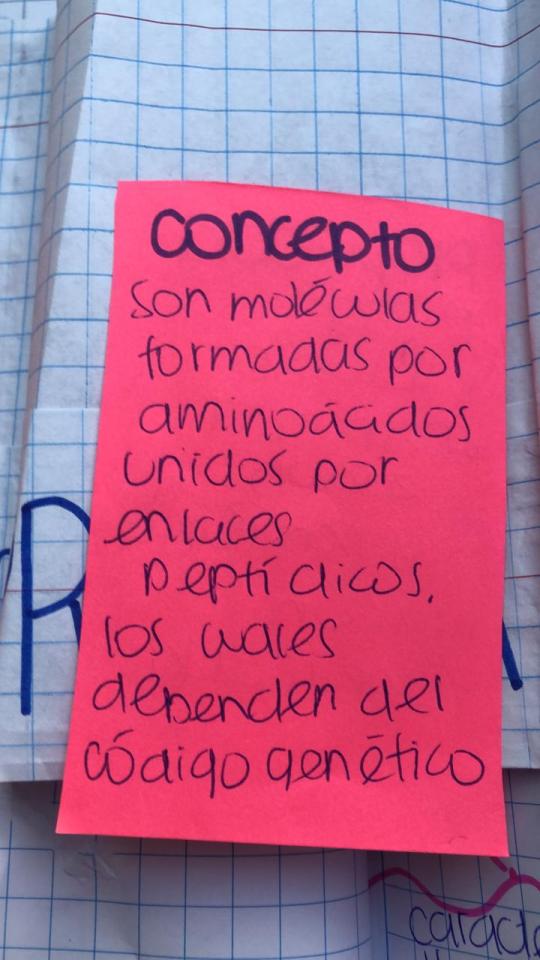 concepto
son moléculas
formadas por
aminoácidos
unidos por
enlaces
peptídicos.
los cuales
dependen del
código genético
R
caracte